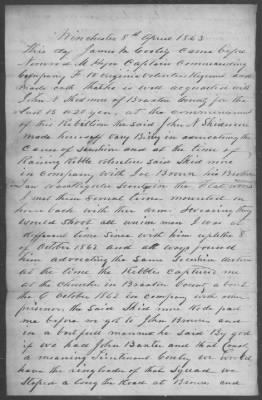 Winchester 8th Aprile 1863
This day James M Cooley Came before
Norvend M Hyer Captain Commanding
Company F 10 virginia volunteer Regiment and
made oath that he is well acquainted with
John S Skidmore of Braxton County for the
last 15 or 20 years, at the commencement
of this Rebellion the said John S Skidmore
made himself very Bisey in advocating the
Cause of secession and at the time of
Raising Rebble volunteers said Skidmore
in Company with Joe Brown his Brother
in Law was
I met them several times mounted on
horse back with their Arms Swearing they
would shoot all union men I was at
different times since with him up till the 8
of October 1862 and all ways found
him advocating the same Secesion actions
at the time the Rebbles captured me
at the Church in Braxton County about
the 6 October 1862 in company with more
prisoners, the said Skidmore Rode past
me before we got to John Browns, and
in a boastfull manner he said By god
if we had John Baxter and that Cooley
a meaning Lieutenant Cooley we would
have the ringleaders of that Squad we
stoped a long the Road at Browns and